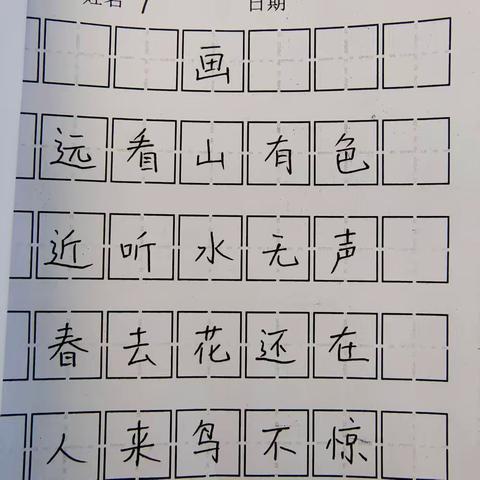 姓名 日期
画
远看山有色
近听水无声
春去花还在
人来鸟不惊